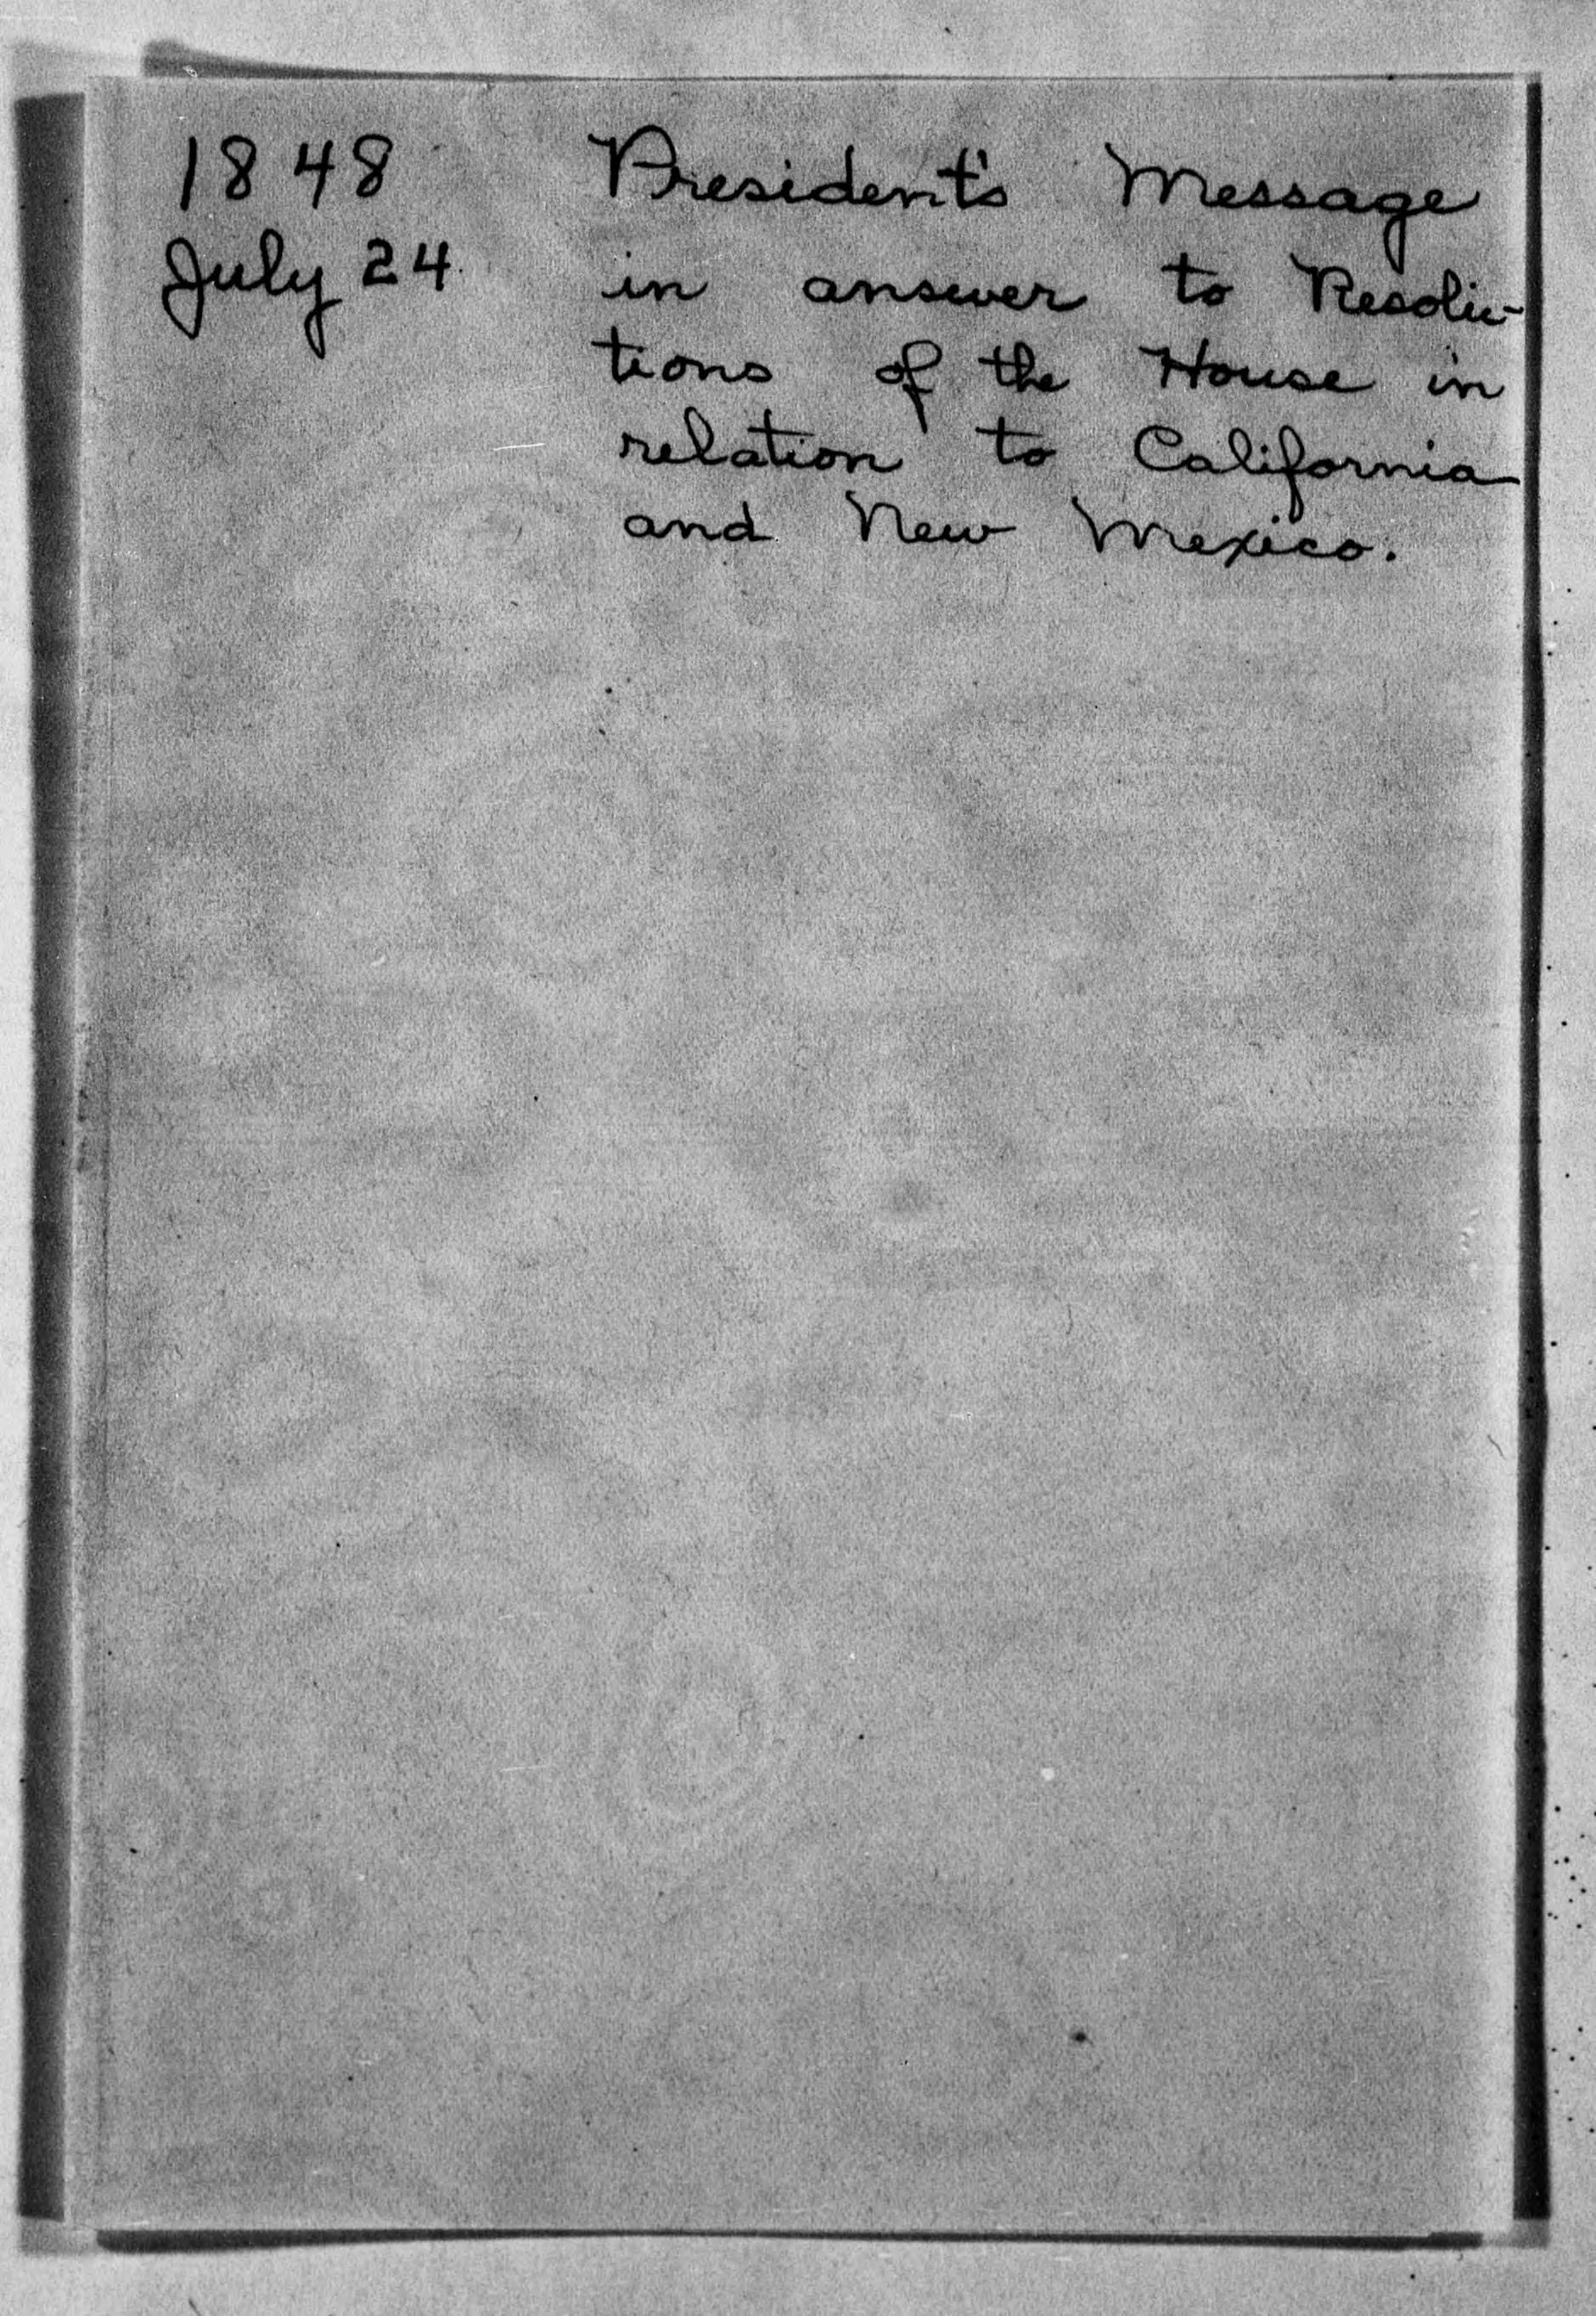 1848 President's Message
July 24 in answer to Resolu-
tions of the House in
relation to California
and New Mexico.